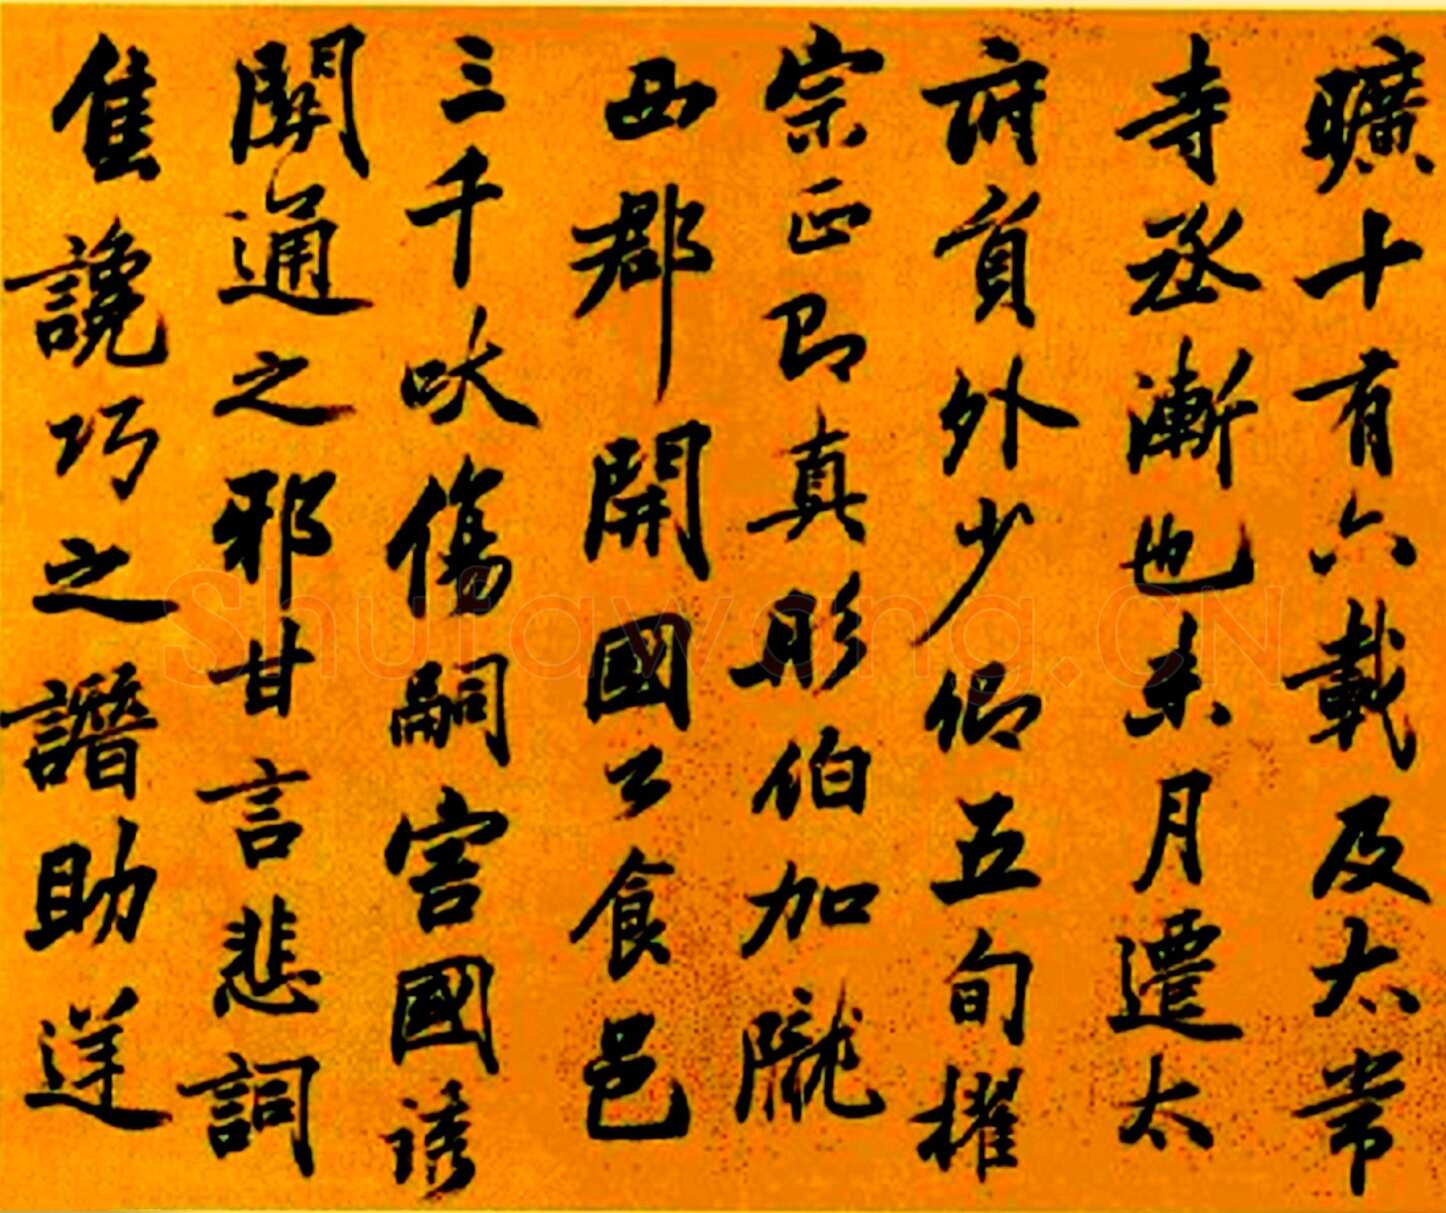 曠十有六載及太常
寺丞漸也未月遷太
府員外少卿五旬擢
宗正即真彤伯加隴
西郡開國公食邑
三千吠傷嗣害國誘
關通之邪甘言悲詞
讒巧之譖助逆
Shufawang.CN